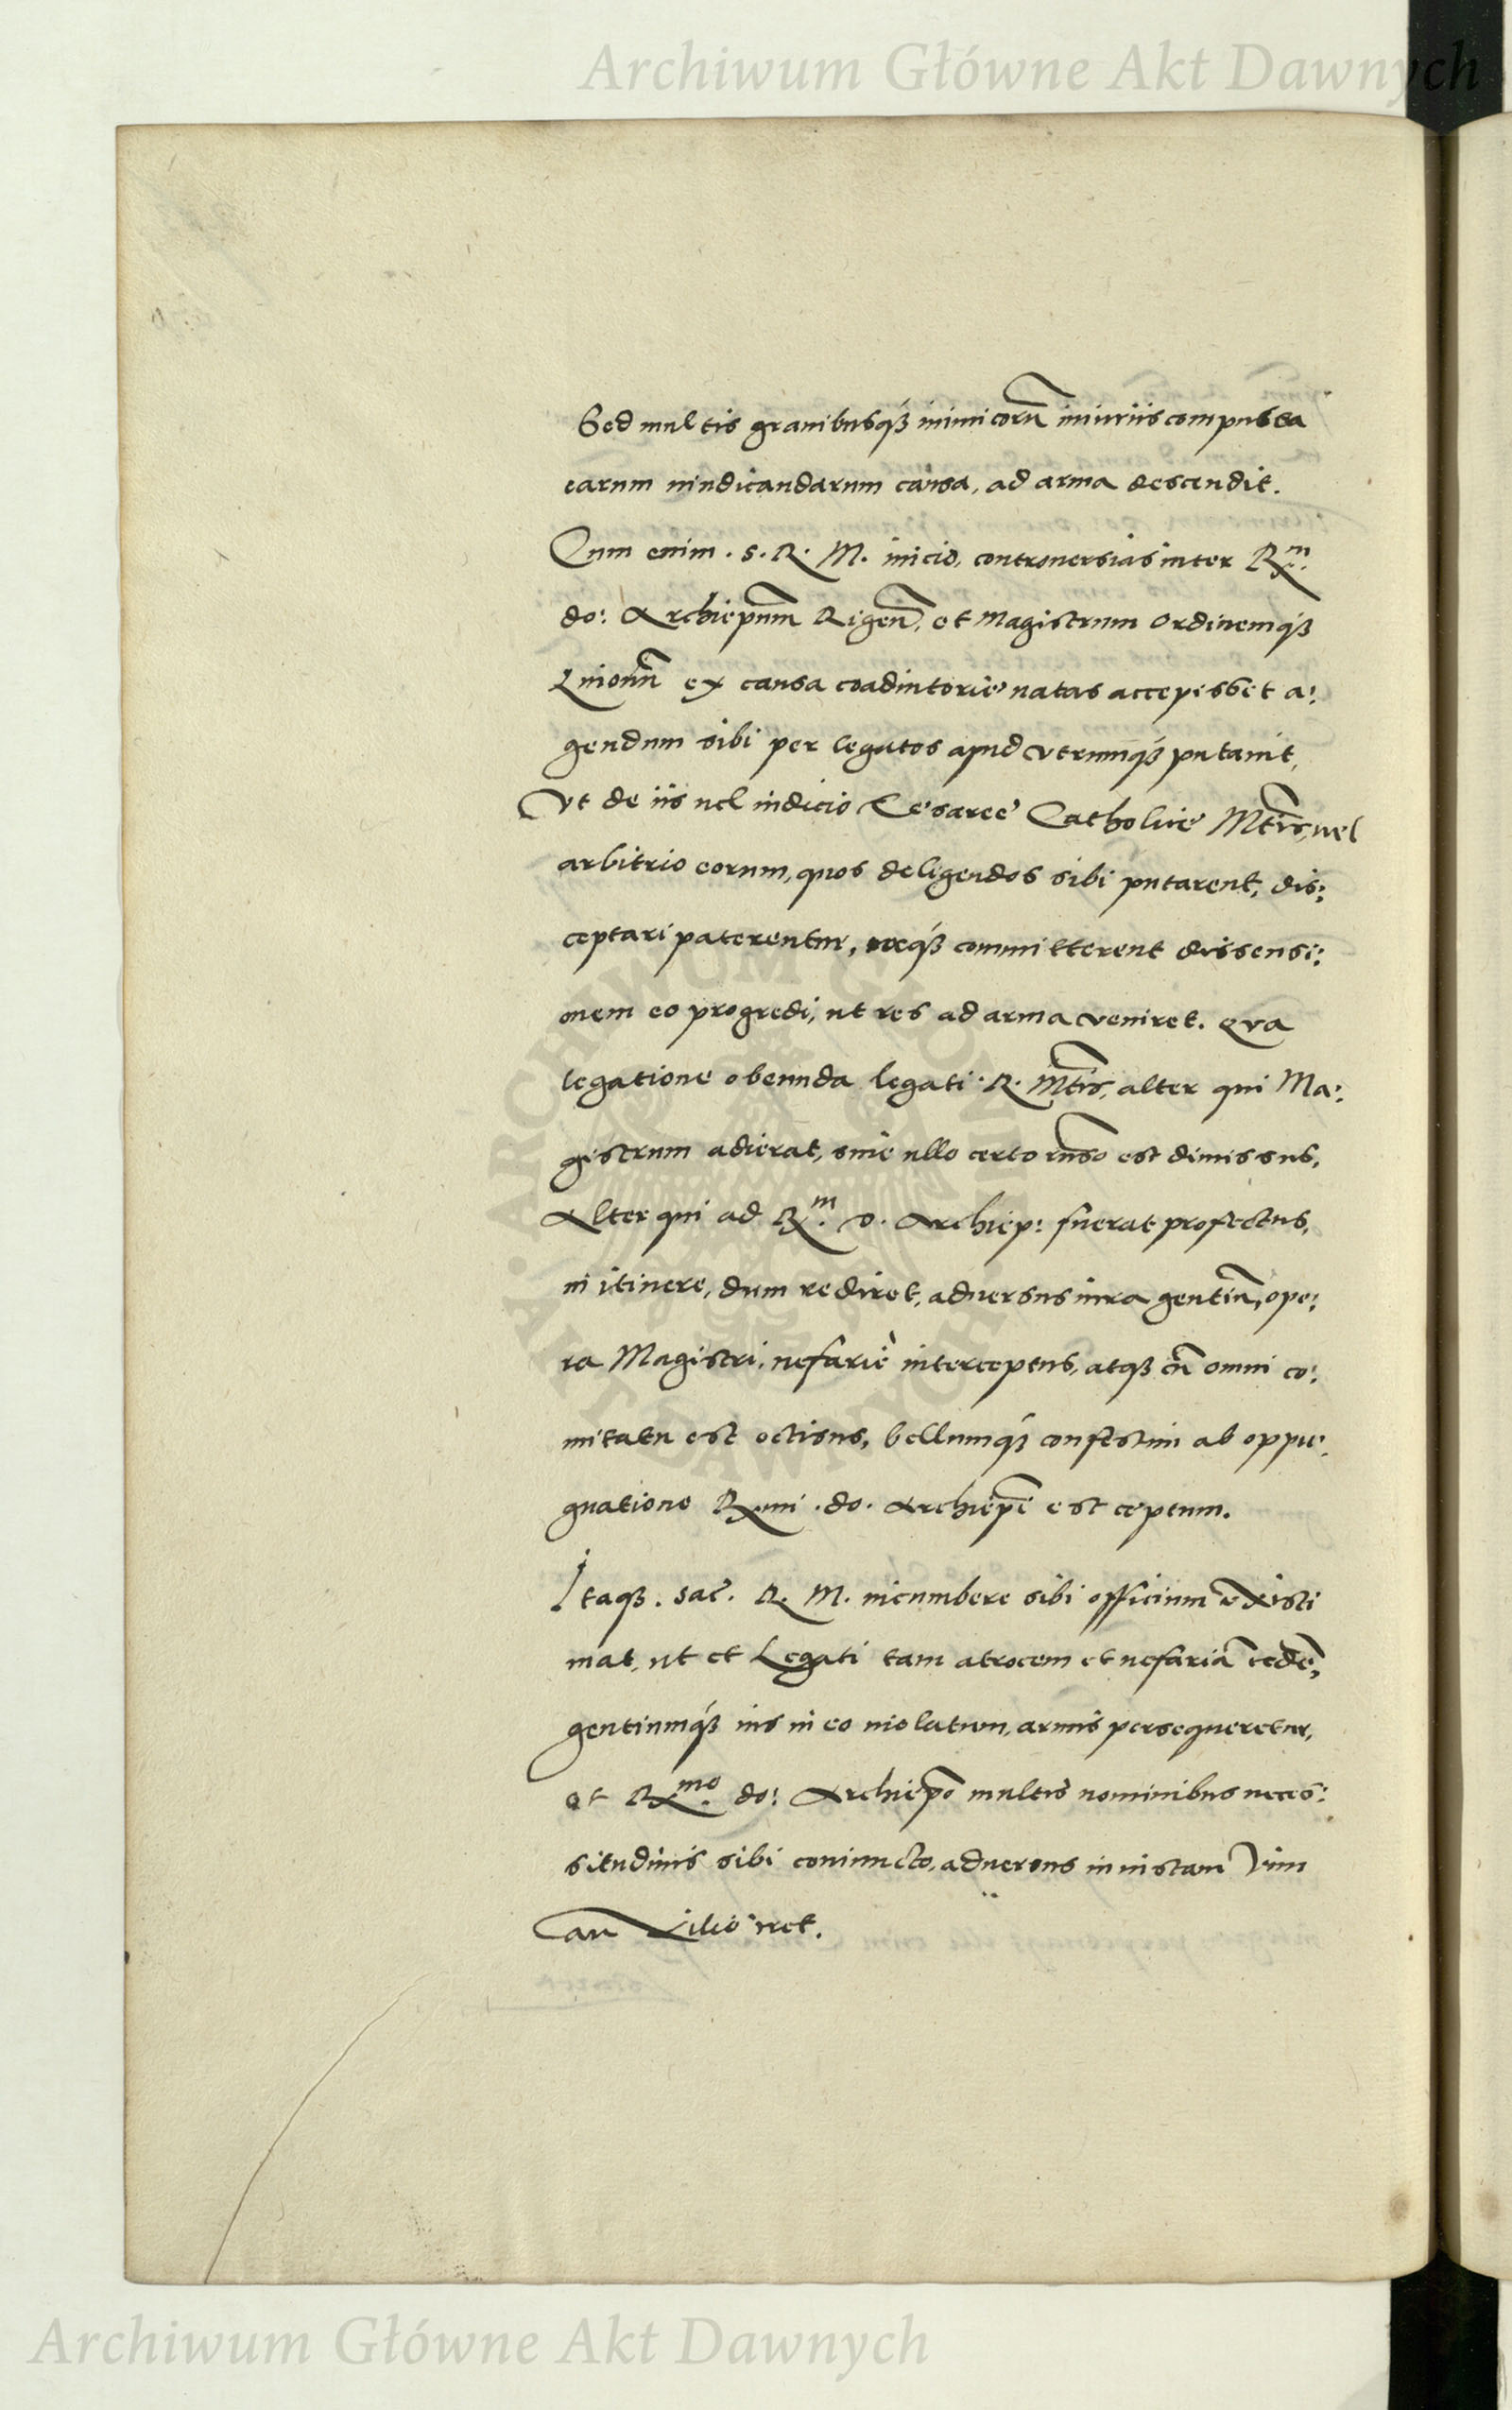 Archiwum Główne Akt Dawnych
Sed multis grauibusq́ꝫ inimicorū iniuriis compulsa
earum uindicandarum causa, ad arma descendit.
Cum enim . S. R. M. inicio, controuersias inter R.m
do: Archiepum̃ Rigeñ, et Magistrum Ordinemq́ꝫ
Liuoniñ ex causa coadiutorie natas accepisset a:
gendum sibi per legatos apud vtrumq́ꝫ putauit,
Vt de iis uel iudicio Cesaree Catholice Mt̃is, uel
arbitrio eorum, quos deligendos sibi putarent, dis:
ceptari paterentur, committerent dissensi:
onem eo progredi, ut res ad arma veniret. Qva
legatione obeunda legati . R. Mt̃is, alter qui Ma:
gistrum adierat, sine ullo certo rñso est dimissus,
Alter qui ad R.m D. Archiep: fuerat profectus,
in itinere, dum rediret, aduersus iura gentiũ, ope:
ra Magistri, nefariè interceptus, atqꝫ cũ omni co:
mitatu est occisus, bellumq́ꝫ confestim ab oppu:
gnatione R.mi . do. Archiepĩ est ceptum.
Itaqꝫ . Sac. R. M. incumbere sibi officium existi
mat, ut et Legati tam atrocem et nefariã cedẽ,
gentiumq́ꝫ ius in eo uiolatum, armis persequeretur,
et R.mo do: Archiepõ multis nominibus neces:
situdinis sibi coniuncto, aduersus iniustam Vim
auxilio iret.
ARCHIWUM GŁÓWNE AKT DAWNYCH
Archiwum Główne Akt Dawnych